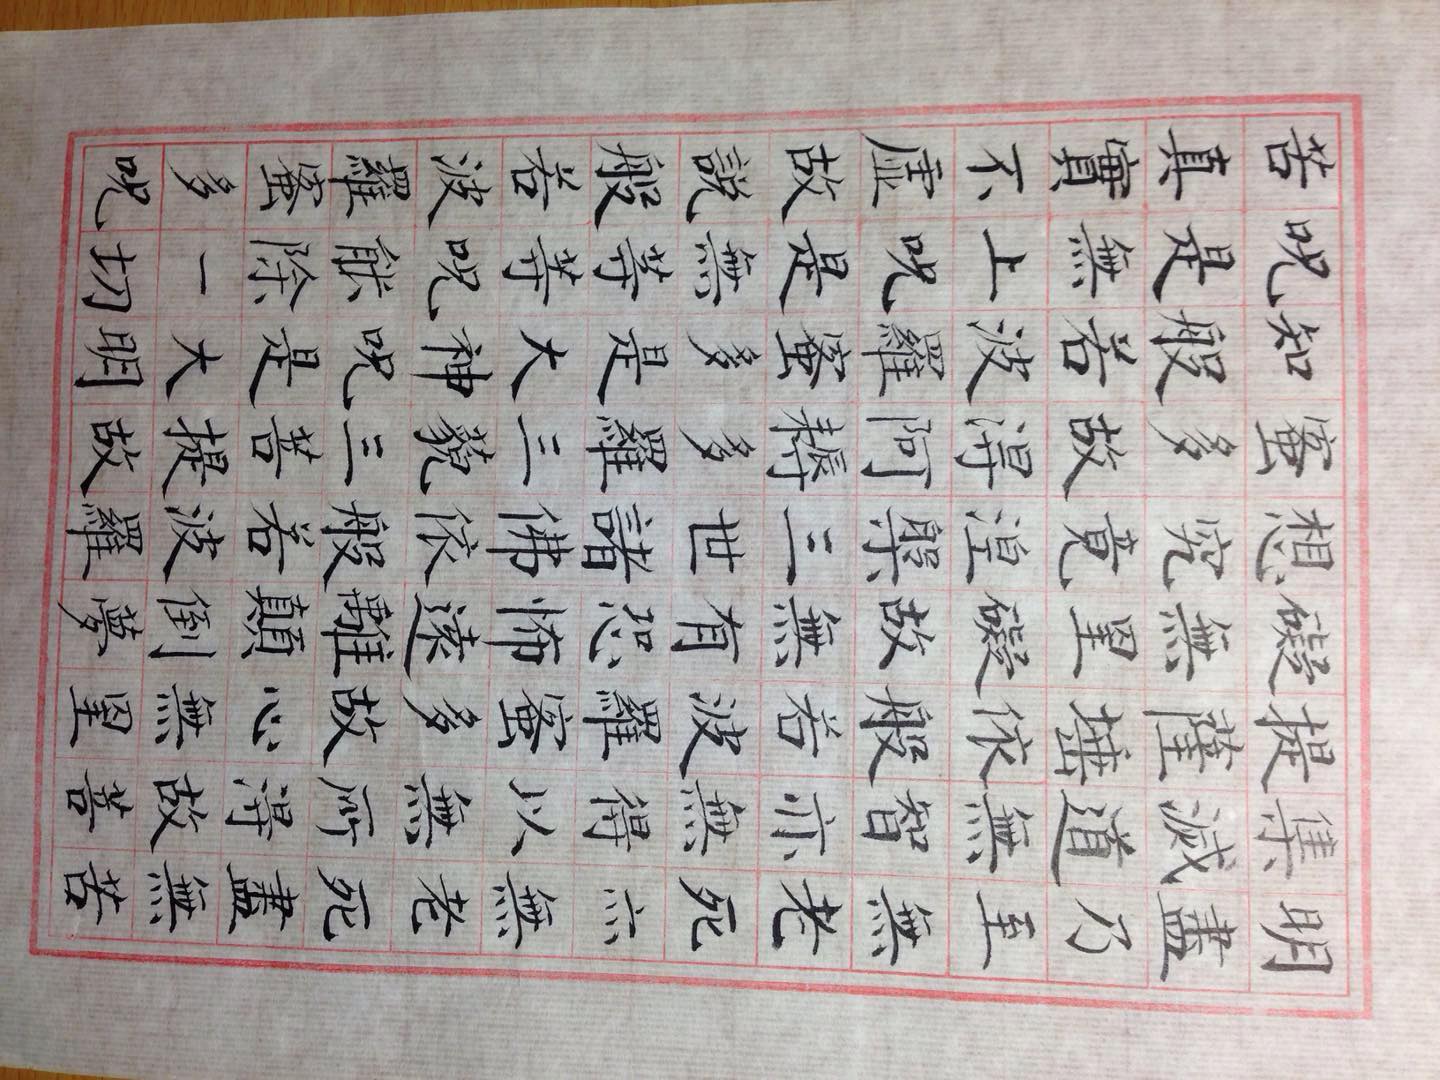 明盡乃至無老死亦無老死盡無苦
集滅道無智亦無得以無所得故菩
提薩埵依般若波羅蜜多故心無罣
礙無罣礙故無有恐怖遠離顛倒夢
想究竟涅槃三世諸佛依般若波羅
蜜多故得阿耨多羅三藐三菩提故
知般若波羅蜜多是大神呪是大明
呪是無上呪是無等等呪能除一切
苦真實不虛故說般若波羅蜜多呪